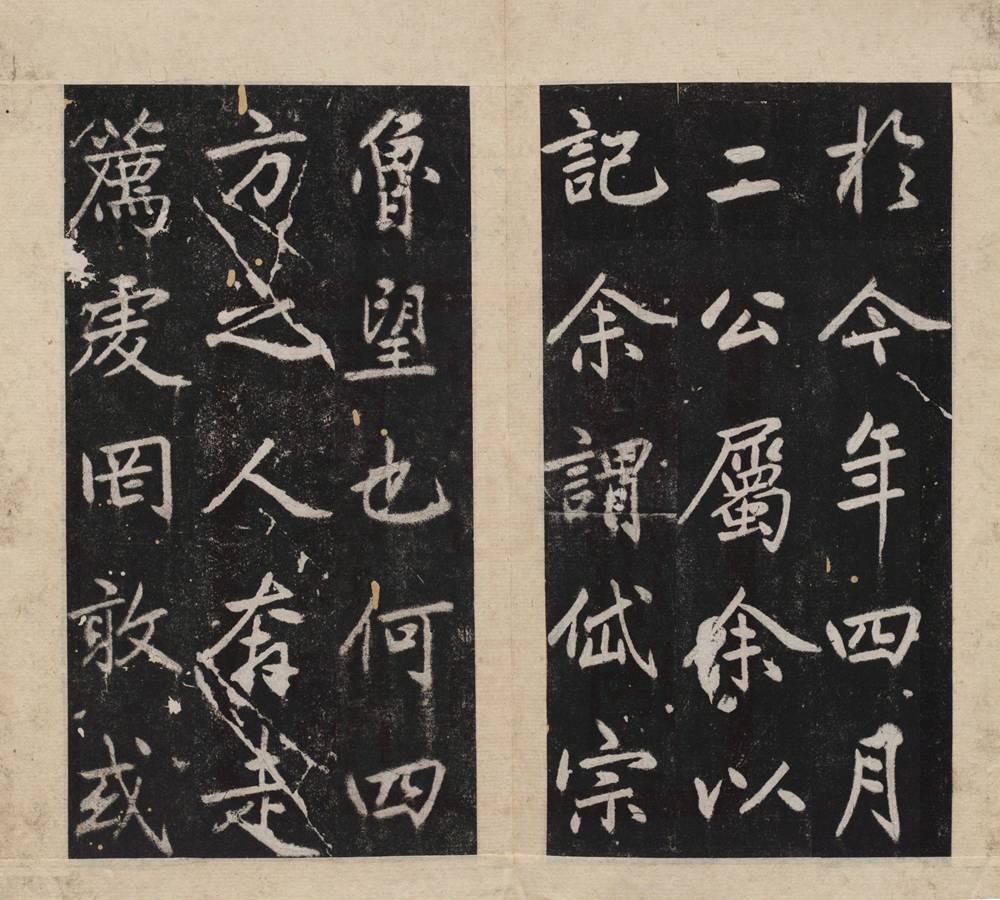 於今年四月
二公屬余以
記余謂岱宗
魯望也何四
方之人奔走
篤虔罔敢或